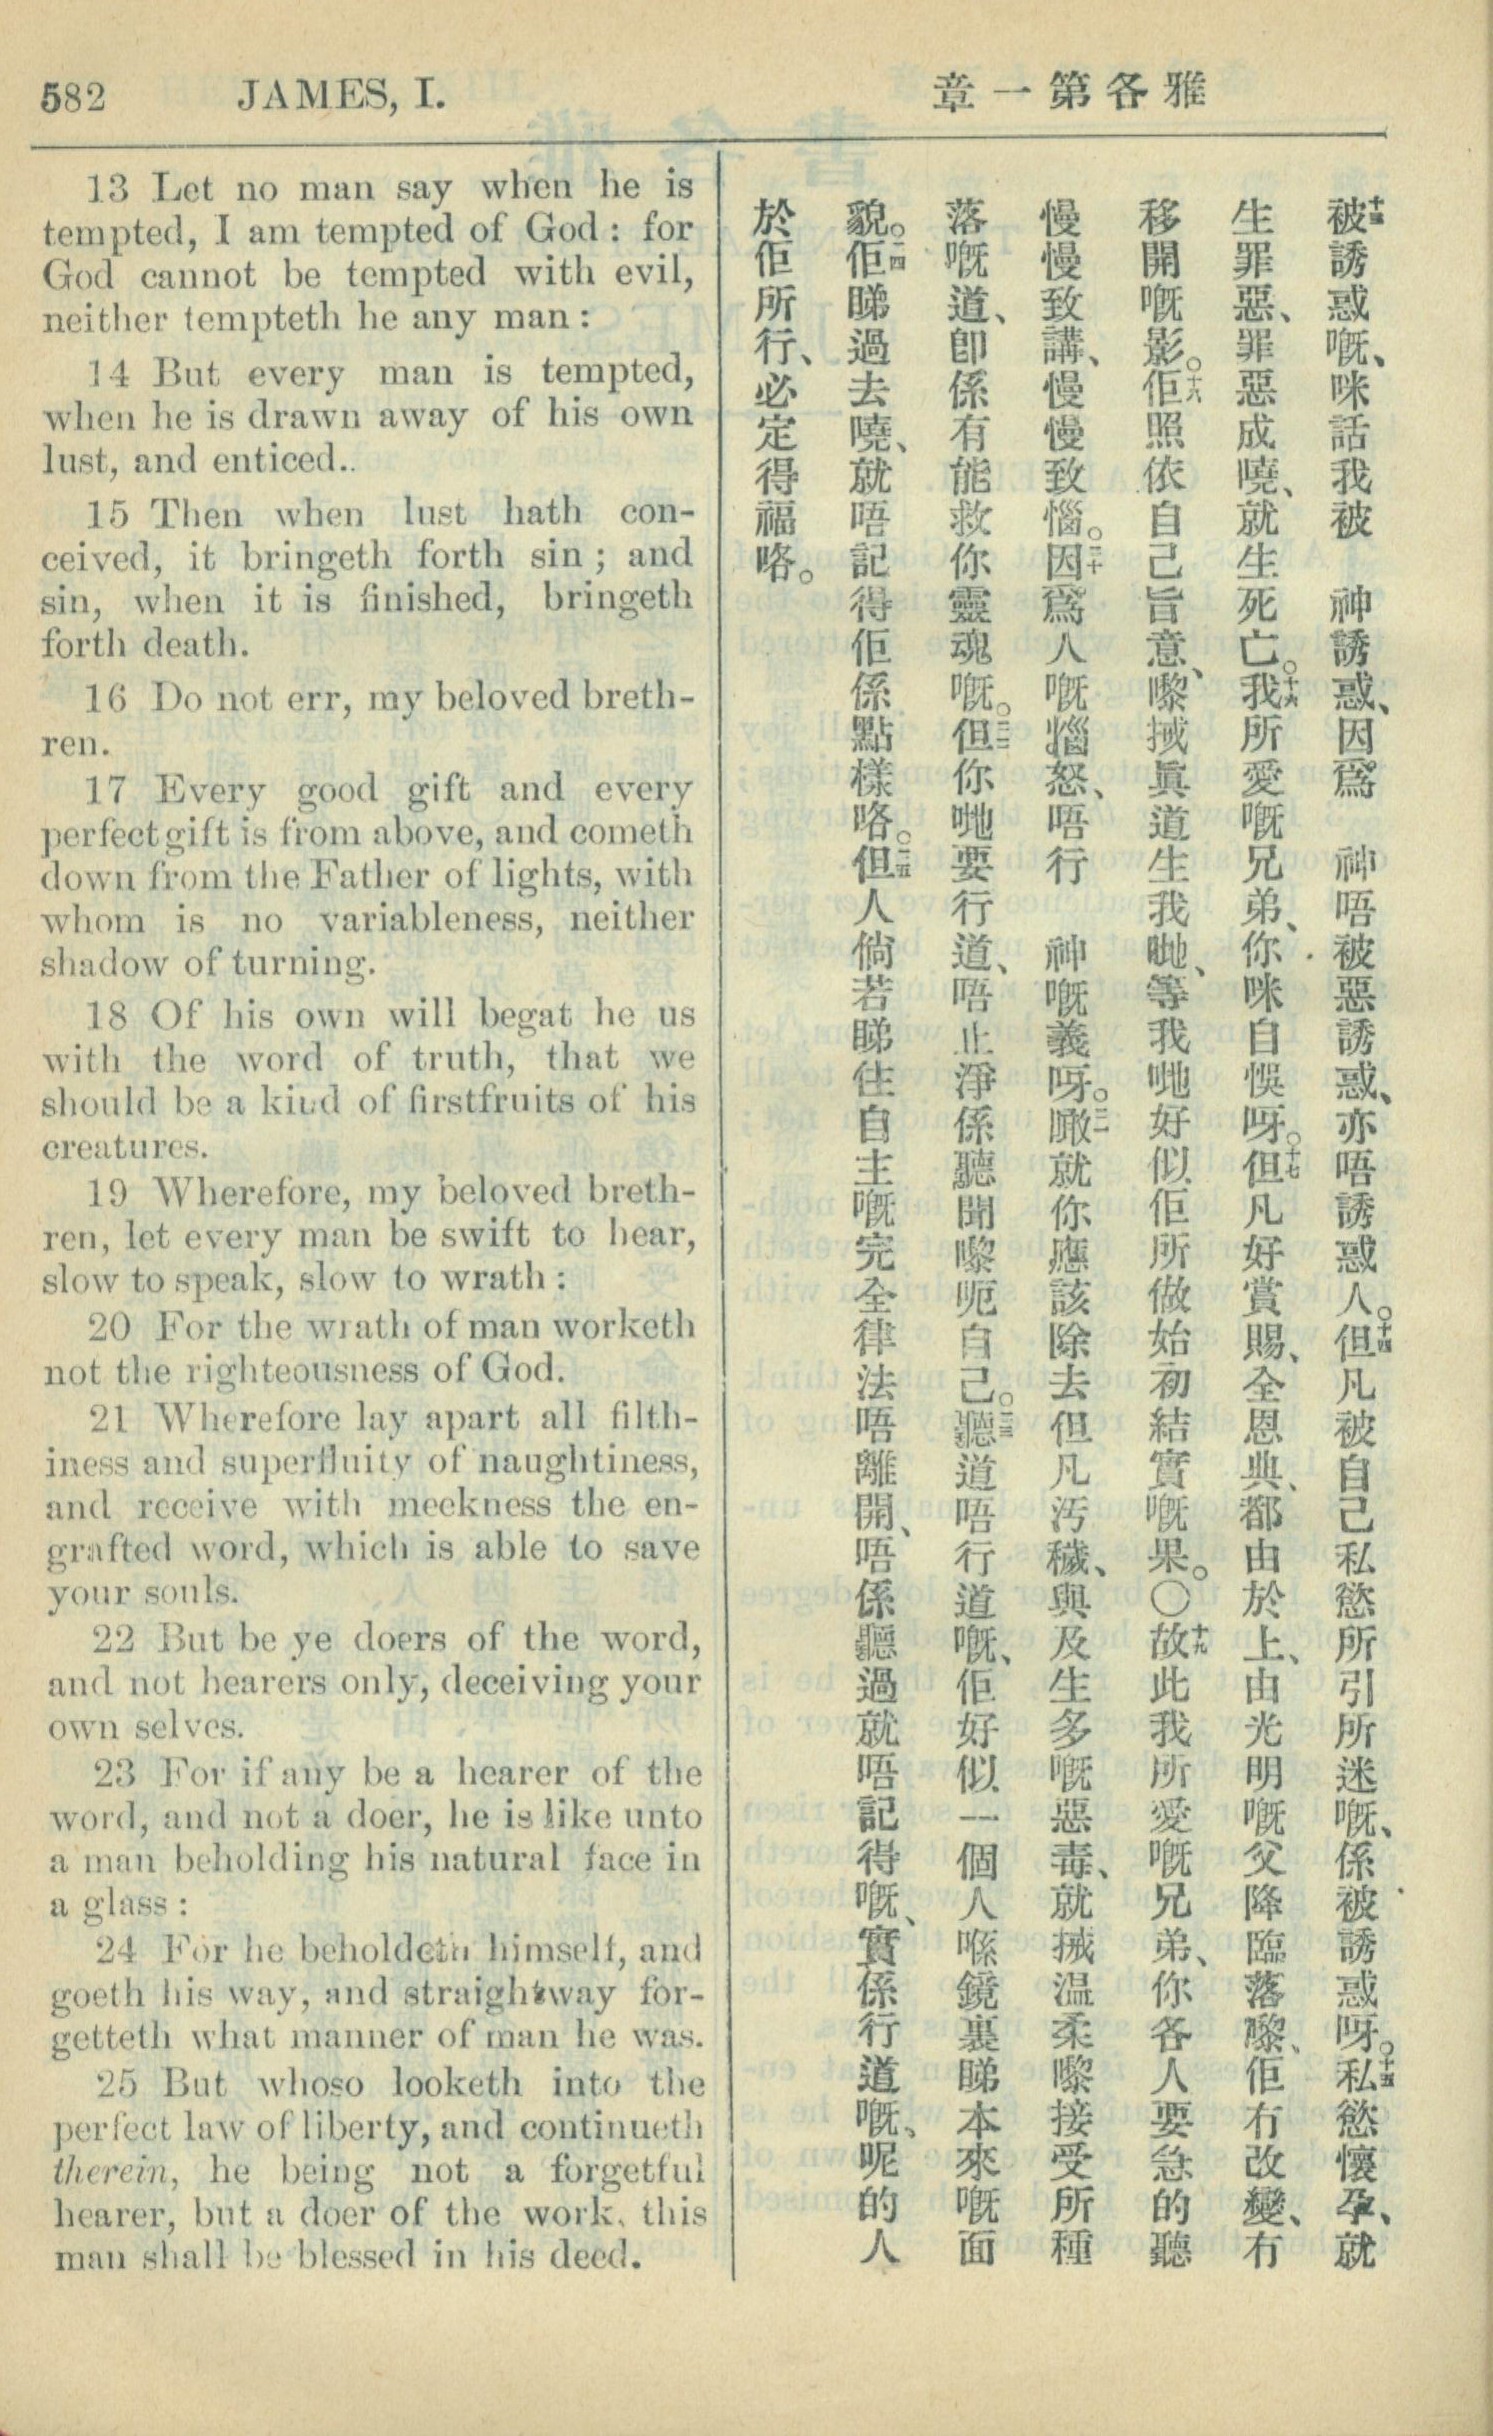 582 JAMES, I.
雅各第一章
13 Let no man say when he is
tempted, I am tempted of God : for
God cannot be tempted with evil,
neither tempteth he any man :
14 But every man is tempted,
when he is drawn away of his own
lust, and enticed..
15 Then when lust hath con-
ceived, it bringeth forth sin ; and
sin, when it is finished, bringeth
forth death.
16 Do not err, my beloved breth-
ren.
17 Every good gift and every
perfect gift is from above, and cometh
down from the Father of lights, with
whom is no variableness, neither
shadow of turning.
18 Of his own will begat he us
with the word of truth, that we
should be a kind of firstfruits of his
creatures.
19 Wherefore, my beloved breth-
ren, let every man be swift to hear,
slow to speak, slow to wrath :
20 For the wrath of man worketh
not the righteousness of God.
21 Wherefore lay apart all filth-
iness and superfluity of naughtiness,
and receive with meekness the en-
grafted word, which is able to save
your souls.
22 But be ye doers of the word,
and not hearers only, deceiving your
own selves.
23 For if any be a hearer of the
word, and not a doer, he is like unto
a man beholding his natural face in
a glass :
24 For he beholdeth himself, and
goeth his way, and straightway for-
getteth what manner of man he was.
25 But whoso looketh into the
perfect law of liberty, and continueth
therein, he being not a forgetful
hearer, but a doer of the work, this
man shall be blessed in his deed.
被誘惑嘅、咪話我被 神誘惑、因爲 神唔被惡誘惑、亦唔誘惑人。十四但凡被自己私慾所引所迷嘅、係被誘惑呀。十五私慾懷孕、就
生罪惡、罪惡成嘵、就生死亡。十六我所愛嘅兄弟、你咪自悞呀。十七但凡好賞賜、全恩典、都由於上、由光明嘅父降臨落嚟、佢冇改變、冇
移開嘅影。十八佢照依自己旨意、嚟搣眞道生我哋、等我哋好似佢所做始初結實嘅果。〇十九故此我所愛嘅兄弟、你各人要急的聽
慢慢致講、慢慢致惱。二十因爲人嘅惱怒、唔行 神嘅義呀。二一噉就你應該除去但凡汚穢、與及生多嘅惡毒、就搣温柔嚟接受所種
落嘅道、卽係有能救你靈魂嘅。二二但你哋要行道、唔止淨係聽聞嚟呃自己。二三聽道唔行道嘅、佢好似一個人喺鏡裏睇本來嘅面
貌。二四佢睇過去嘵、就唔記得佢係點樣咯。二五但人倘若睇住自主嘅完全律法唔離開、唔係聽過就唔記得嘅、實係行道嘅、呢的人
於佢所行、必定得福咯。